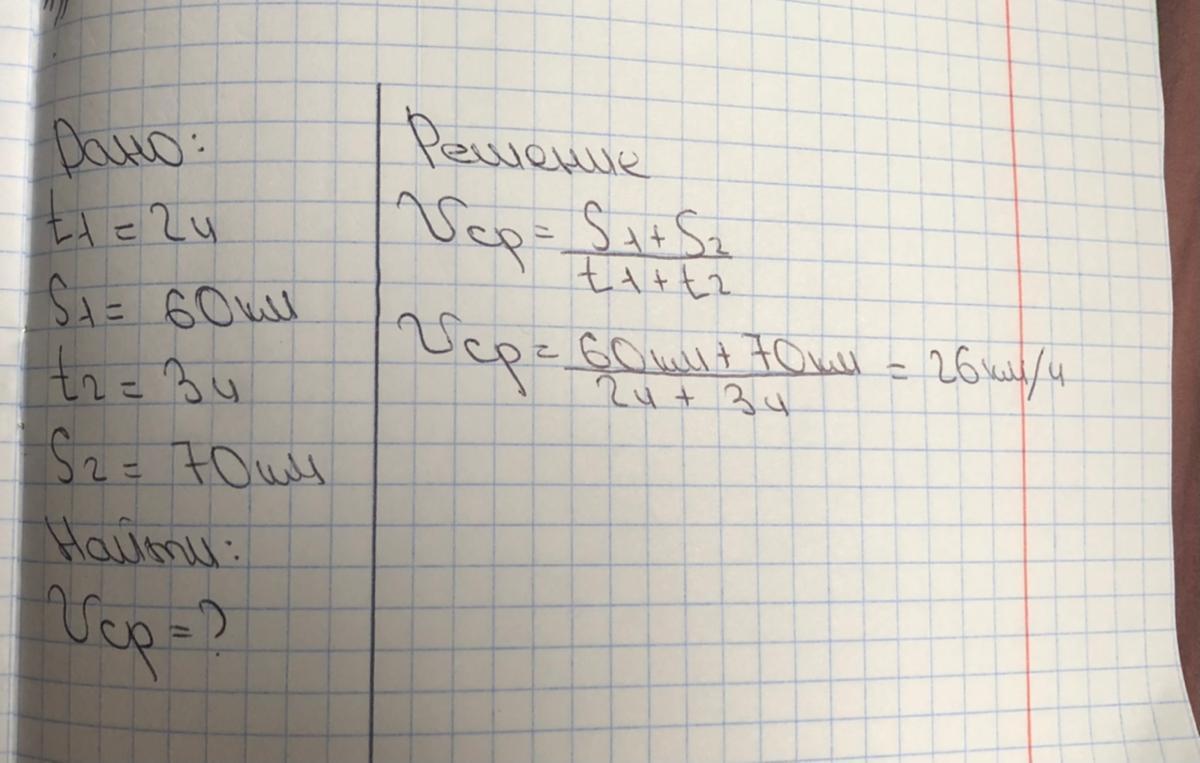 Дано:
t1 = 2ч
S1 = 60км
t2 = 3ч
S2 = 70км
Найти:
Vср = ?
Решение
Vср = S1 + S2
t1 + t2
Vср = 60км + 70км = 26км/ч
2ч + 3ч